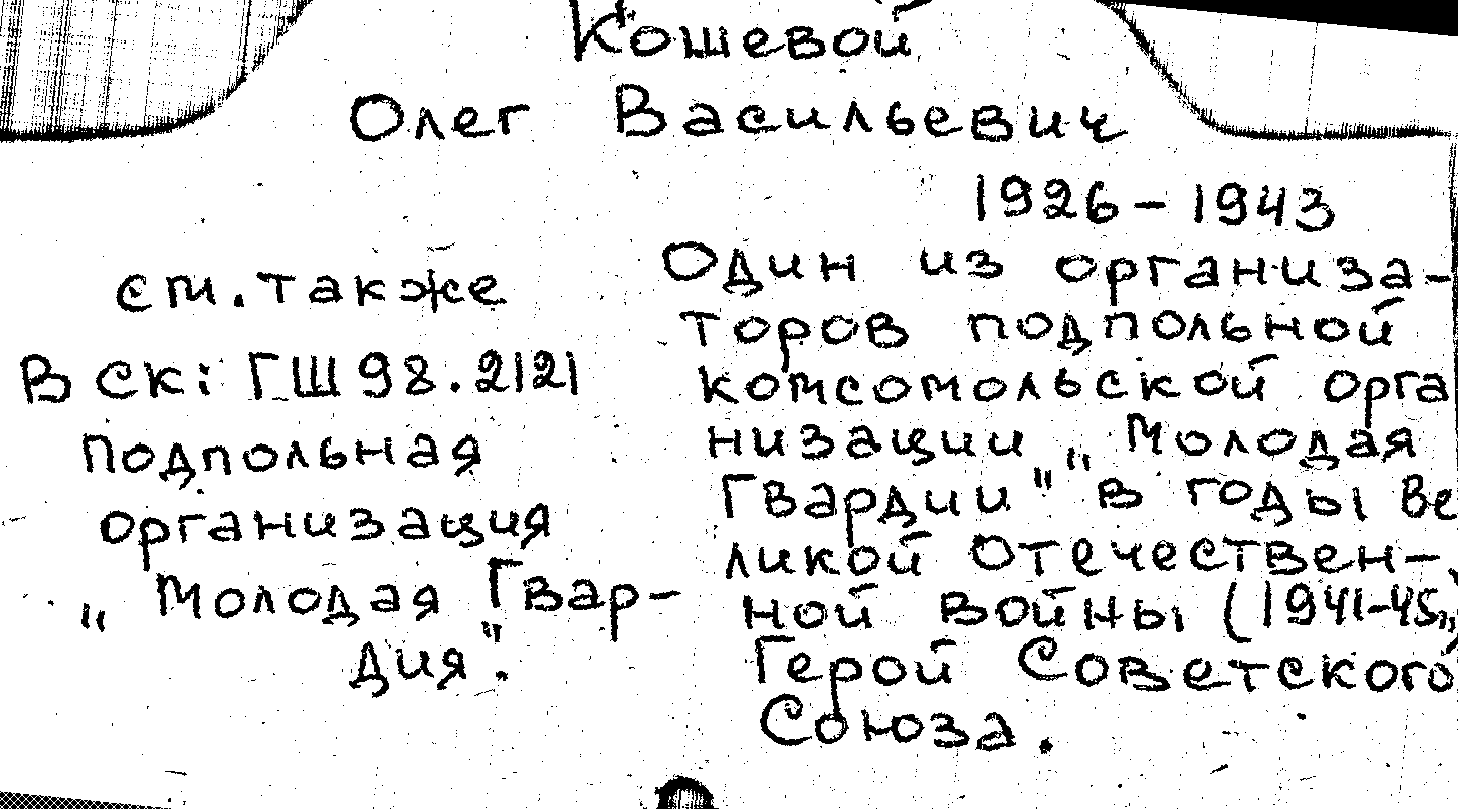 Кошевой
Олег Васильевич
1926-1943
см. также
В СК: ГШ 98.2121
подпольная
организация
„Молодая Гвар-
дия".
Один из организа-
торов подпольной
комсомольской орга
низации „Молодая
Гвардии" в годы Ве
ликой Отечествен-
ной войны (1941-45),
Герой Советского
Союза.